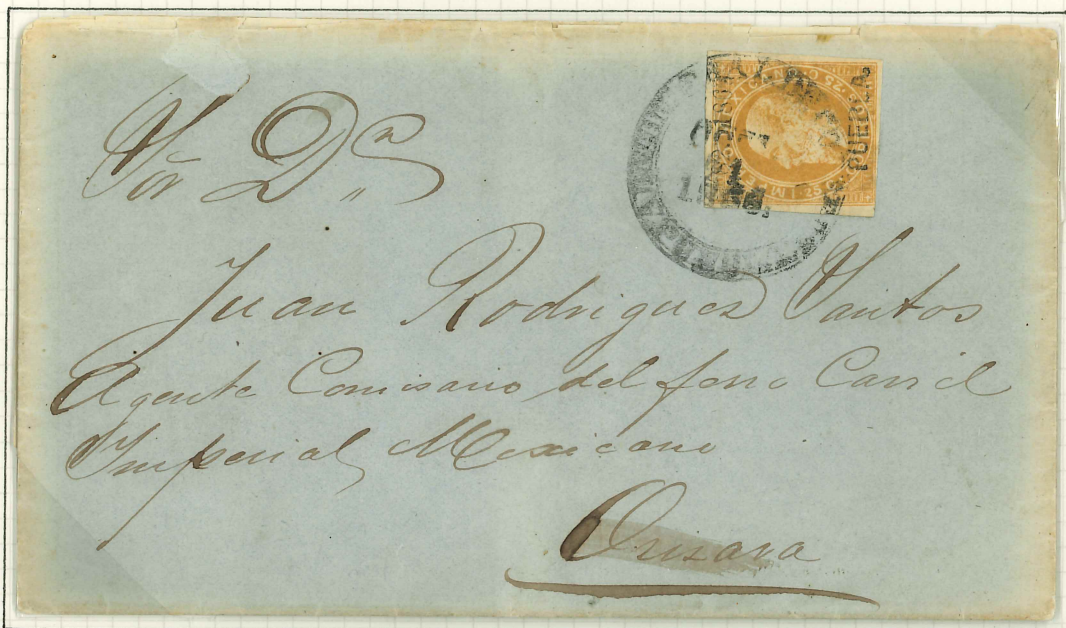 Sõr Dn
Juan Rodriguez Santos
Agente Comisario del ferro Carril
Imperial Mexicano
Orisava
PUEBLA